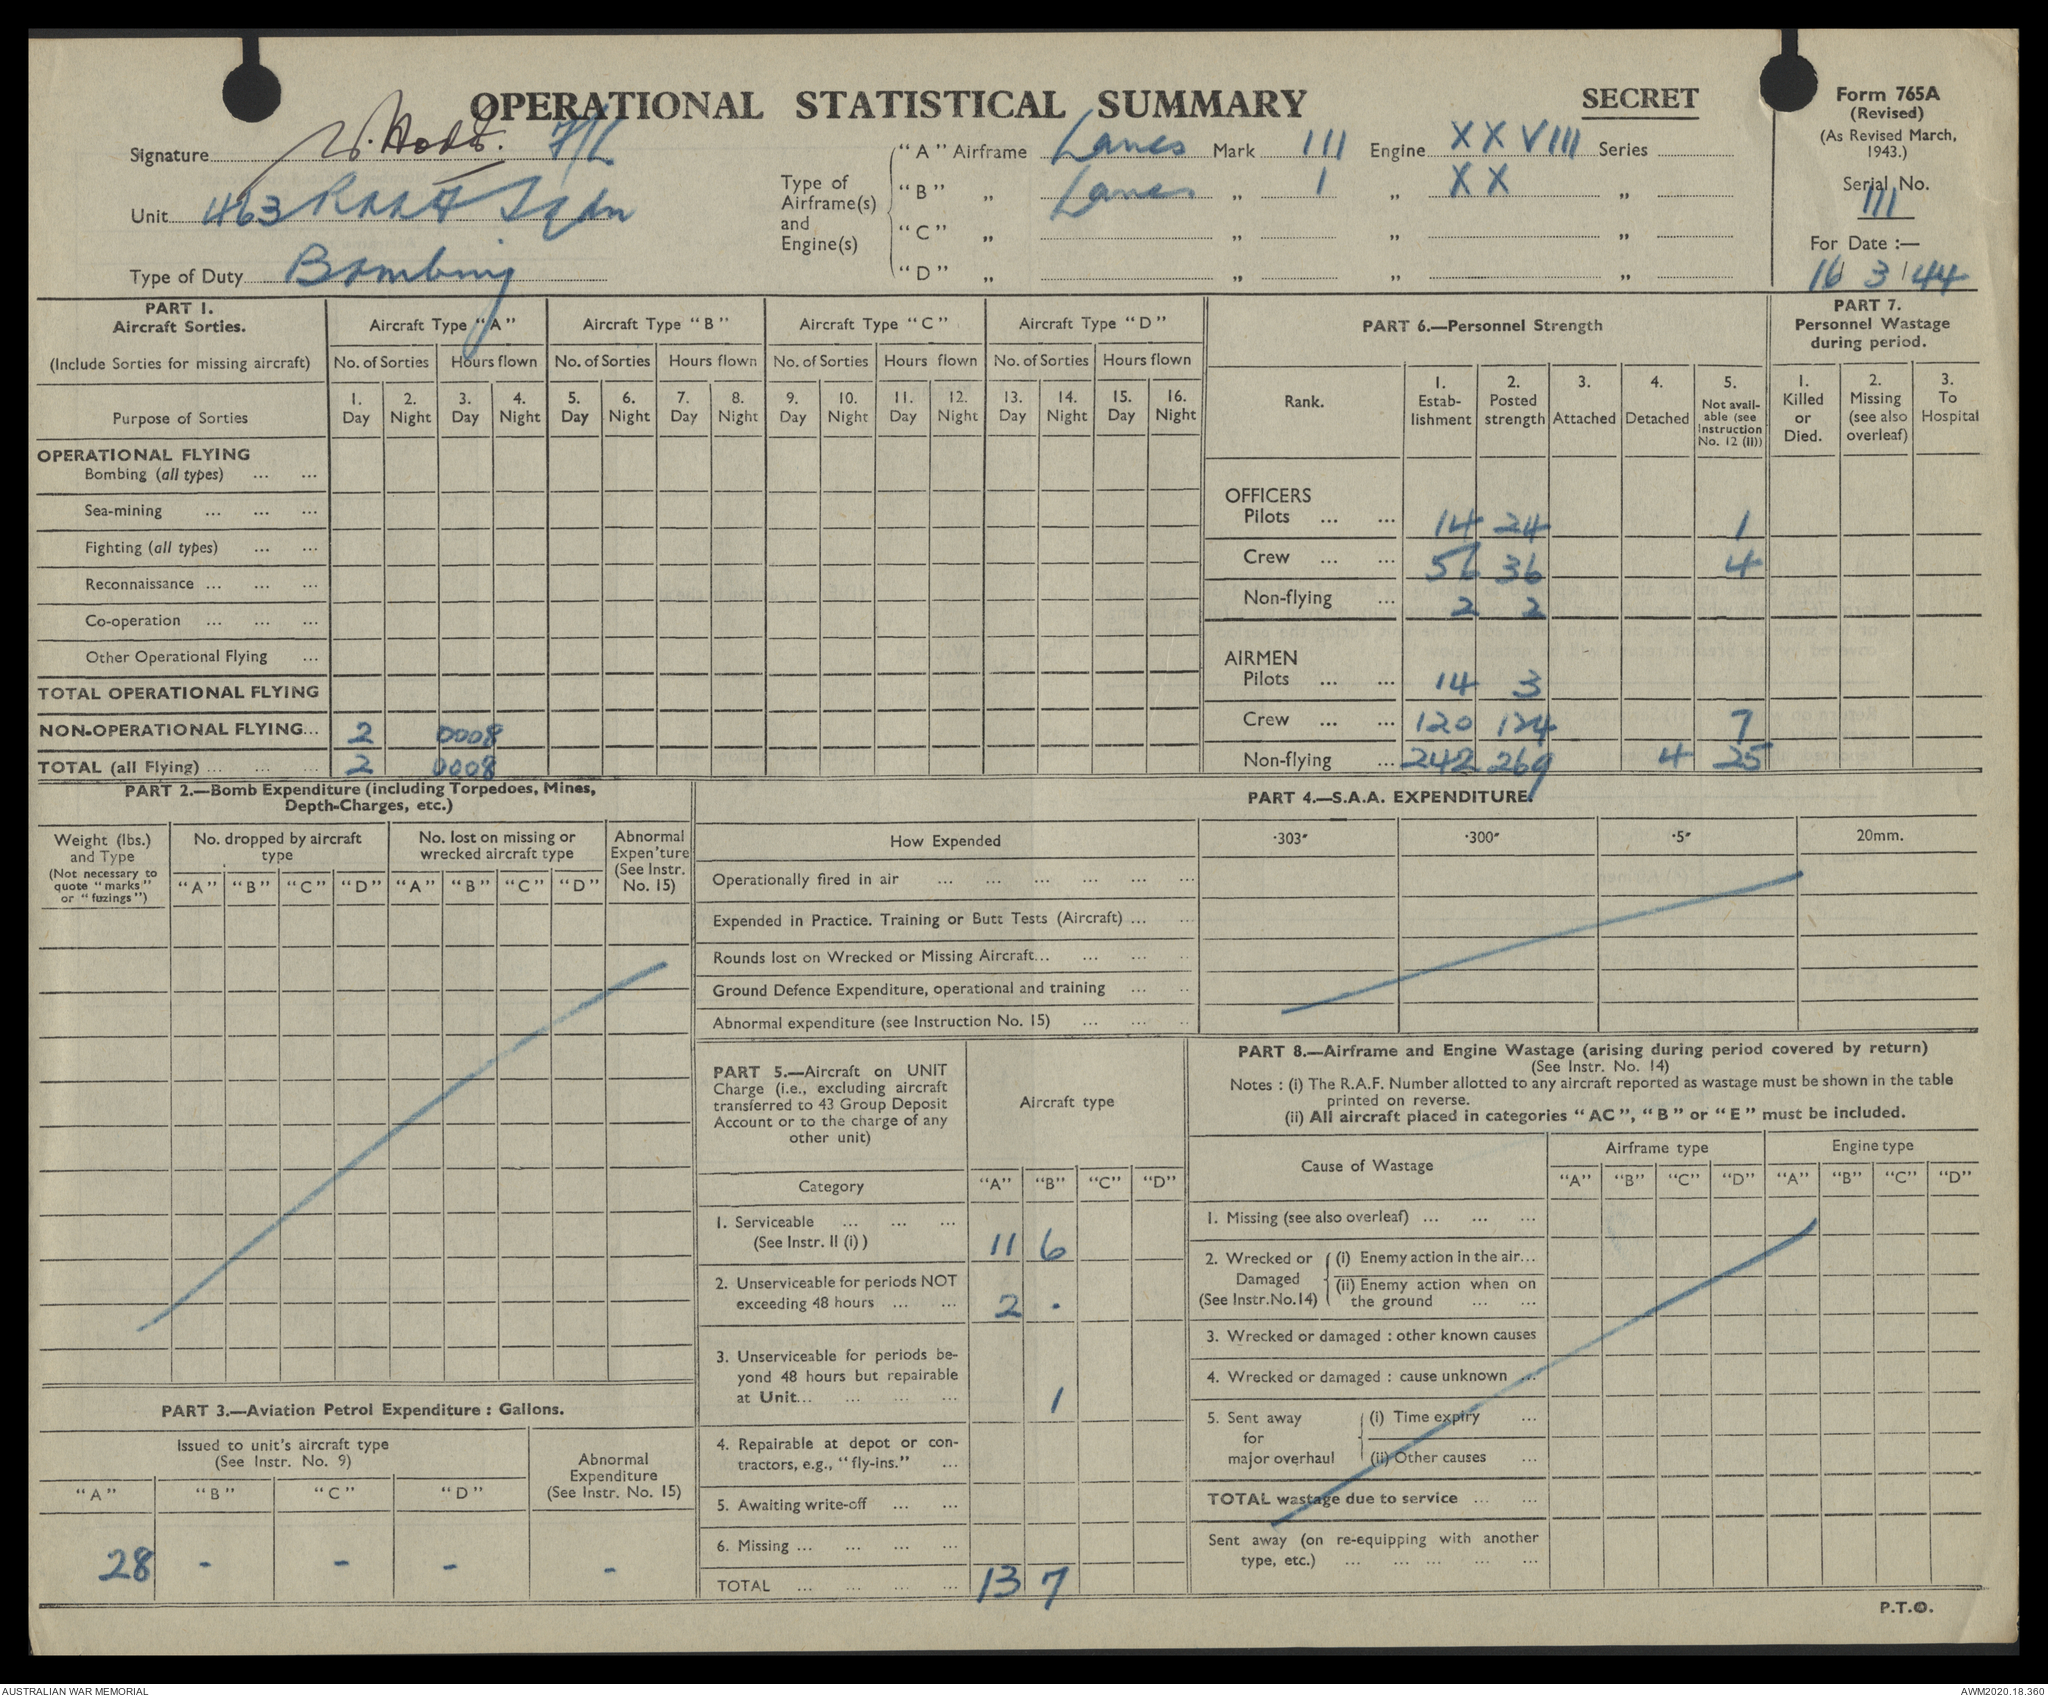 OPERATIONAL STATISTICAL SUMMARY
SECRET
Form 765A
(Revised)
(As Revised March,
1943.)
Serial No.
111
For Date :—
16/ 3 /44
Signature F/L
Unit 463 RAAF Sqdn
Type of Duty Bombing
Type of
Airframe(s)
and
Engine(s)
"A" Airframe Lancs Mark 111 Engine XXVIII Series
"B" „ Lancs „ 1 „ XX „
"C" „ „ „ „
"D" „ „ „ „
PART 1.
Aircraft Sorties.
(Include Sorties for missing aircraft)
Purpose of Sorties
Aircraft Type "A" Aircraft Type "B" Aircraft Type "C" Aircraft Type "D"
No. of Sorties Hours flown No. of Sorties Hours flown No. of Sorties Hours flown No. of Sorties Hours flown
1. 2. 3. 4. 5. 6. 7. 8. 9. 10. 11. 12. 13. 14. 15. 16.
Day Night Day Night Day Night Day Night Day Night Day Night Day Night Day Night
OPERATIONAL FLYING
Bombing (all types) ... ...
Sea-mining ... ... ...
Fighting (all types) ... ...
Reconnaissance ... ... ...
Co-operation ... ... ...
Other Operational Flying ...
TOTAL OPERATIONAL FLYING
NON-OPERATIONAL FLYING... 2 0008
TOTAL (all Flying) ... ... ... 2 0008
PART 6.—Personnel Strength
Rank.
1. Estab-lishment
2. Posted strength
3. Attached
4. Detached
5. Not avail-able (see Instruction No. 12 (II))
OFFICERS
Pilots ... ... 14 24 1
Crew ... ... 56 36 4
Non-flying ... 2 2
AIRMEN
Pilots ... ... 14 3
Crew ... ... 120 124 7
Non-flying ... 242 269 4 25
PART 7.
Personnel Wastage
during period.
1. Killed or Died.
2. Missing (see also overleaf)
3. To Hospital
PART 2.—Bomb Expenditure (including Torpedoes, Mines,
Depth-Charges, etc.)
Weight (lbs.)
and Type
(Not necessary to
quote "marks"
or "fuzings")
No. dropped by aircraft
type
No. lost on missing or
wrecked aircraft type
Abnormal
Expen'ture
(See Instr.
No. 15)
"A" "B" "C" "D" "A" "B" "C" "D"
PART 4.—S.A.A. EXPENDITURE.
How Expended ·303" ·300" ·5" 20mm.
Operationally fired in air ... ... ... ... ... ...
Expended in Practice. Training or Butt Tests (Aircraft) ... ...
Rounds lost on Wrecked or Missing Aircraft... ... ... ..
Ground Defence Expenditure, operational and training ... ..
Abnormal expenditure (see Instruction No. 15) ... ... ..
PART 3.—Aviation Petrol Expenditure : Gallons.
Issued to unit's aircraft type
(See Instr. No. 9)
Abnormal
Expenditure
(See Instr. No. 15)
"A" "B" "C" "D"
28 - - - -
PART 5.—Aircraft on UNIT
Charge (i.e., excluding aircraft
transferred to 43 Group Deposit
Account or to the charge of any
other unit)
Aircraft type
Category "A" "B" "C" "D"
1. Serviceable ... ... ...
(See Instr. II (i) ) 11 6
2. Unserviceable for periods NOT
exceeding 48 hours ... ... 2 ·
3. Unserviceable for periods be-
yond 48 hours but repairable
at Unit... ... ... ... 1
4. Repairable at depot or con-
tractors, e.g., "fly-ins." ...
5. Awaiting write-off ... ...
6. Missing ... ... ... ...
TOTAL ... ... ... ... 13 7
PART 8.—Airframe and Engine Wastage (arising during period covered by return)
(See Instr. No. 14)
Notes : (i) The R.A.F. Number allotted to any aircraft reported as wastage must be shown in the table
printed on reverse.
(ii) All aircraft placed in categories "AC", "B" or "E" must be included.
Cause of Wastage Airframe type Engine type
"A" "B" "C" "D" "A" "B" "C" "D"
1. Missing (see also overleaf) ... ... ...
2. Wrecked or
Damaged
(See Instr.No.14)
(i) Enemy action in the air...
(ii) Enemy action when on
the ground ... ...
3. Wrecked or damaged : other known causes
4. Wrecked or damaged : cause unknown ...
5. Sent away
for
major overhaul
(i) Time expiry ...
(ii) Other causes ...
TOTAL wastage due to service ... ...
Sent away (on re-equipping with another
type, etc.) ... ... ... ... ...
P.T.O.
AUSTRALIAN WAR MEMORIAL
AWM2020.18.360